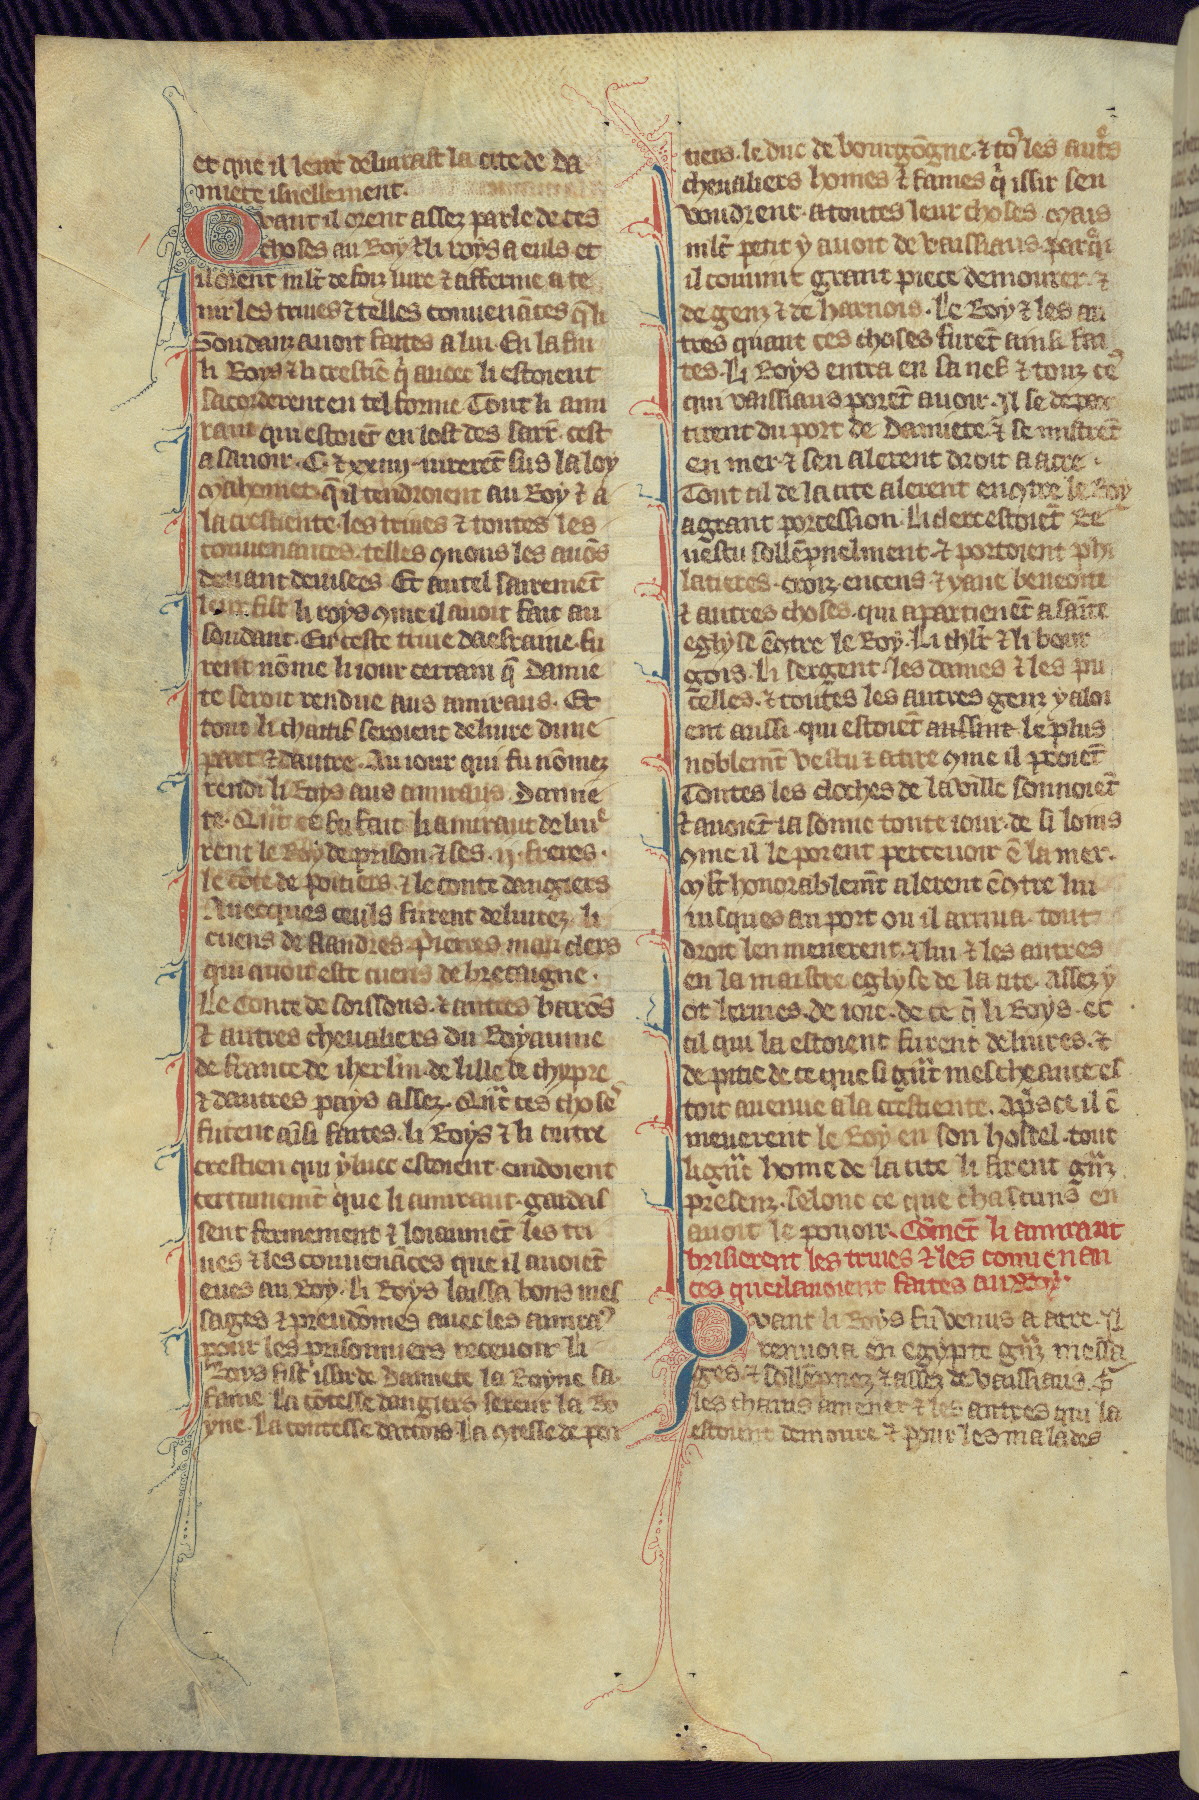 et que il leur deliurast la cite de da
miete isnellement.
Quant il orent assez parle de ces
choses au Roy ⁊ li roys a euls et
il orent ml't de foiz iure ⁊ afferme a te
nir les triues ⁊ telles conuenāces q̄ li
Soudanz auoit faites a lui. En la fin
li Roys ⁊ li crestiē q̇ auec li estoient
sacorderent en tel forme Tout li ami
raut qui estoiēt en lost des sarr̄. cest
a sauoir .C. ⁊ xxiiij. iurerēt sus la loy
Mahomet. q̄ il tendroient au Roy ⁊ a
la crestiente. les triues ⁊ toutes les
conuenances. telles ꝯ nous les auōs
deuant deuisees. Et autel sairemēt
leur fist li roys ꝯme il auoit fait au
soudant. En ceste triue dae fraine. fu
rent nōme li iour certain q̄ Damie
te seroit rendue aus amiraus. Et
tout li chaitif seroient deliure dune
part ⁊ dautre. Au iour qui fu nōmez
rendi li Roys aus amiraus Damie
te. Qn̄t ce fu fait li amiraut deliu
rent le Roy de prison ⁊ ses .ij. freres.
le cōte de poitiers. ⁊ le conte dangiers
Auecques ceuls furent deliurez li
cuens de flandres. Pierres mauclers
qui auoit este cuens de bretaigne.
Le Conte de soissons. ⁊ autres barōs
⁊ autres cheualiers du Royaume
de france de iherl'm. de lille de chypre
⁊ dautres pays assez. Qn̄t ces chose
furent aīsi faites. li Roys ⁊ li autre
crestien qui yluec estoient cuidoient
certainemt̄ que li amiraut gardas
sent fermement ⁊ loiaumēt les tri
ues ⁊ les conuenāces que il auoiēt
eues au Roy. li Roys laissa bons mes
sages ⁊ preudōmes auec les amira᷒
pour les prisonniers receuoir. li
Roys fist issir de Damiete la Royne sa
fame. la cōtesse dangiers sereur la Ro
yne. La contesse dartois. La ꝯtesse de poi
tiers. le duc de bourgōgne. ⁊ to᷒ les aut̾s
cheualiers homes ⁊ fames q̇ issir sen
voudrent. a toutes leur choses. Mais
ml't petit y auoit de vaissiaus par quoi
il conuint grant piece demourer. ⁊
de genz ⁊ de harnois. Le Roy ⁊ les au
tres quant ces choses furēt ainsi fai
tes. Li Roys entra en sa nef ⁊ touz ce᷒
qui vaissiaus porēt auoir. Il se depar
tirent du port de Damiete. ⁊ se mistrēt
en mer. ⁊ sen alerent droit a acre.
Tout cil de la cite alerent enꝯtre le Roy
a grant porcession. li clerc estoiēt re
uestu sollēpnelment. ⁊ portoient phi
latieres. croiz. encens. ⁊ yaue beneoite
⁊ autres choses. qui apartienēt a sainte
eglyse ēꝯtre le Roy. Li chl'r ⁊ li bour
gois. li sergent. les dames ⁊ les pu
celles. ⁊ toutes les autres genz y aloi
ent aussi. qui estoiēt aussint le plus
noblemt̄ vestu ⁊ atire ꝯme il pooiēt
Toutes les cloches de la ville sonnoiēt
⁊ auoiēt ia sonne toute iour. de si loins
ꝯme il le porent perceuoir ē la mer.
Ml't honorablemt̄ alerent ēꝯtre lui
iusques au port ou il arriua. tout
droit len menerent. ⁊ lui ⁊ les autres
en la maistre eglyse de la cite. Assez y
ot lermes. de ioie. de ce q̄ li Roys. et
cil qui la estoient furent deliures. ⁊
de pitie de ce que si gn̄t mescheance es
toit auenue a la crestiente. Ap̄s ce il ē
menerent le Roy en son hostel. tout
li gn̄t home de la cite li firent gn̄z
presenz. selonc ce que chascuns en
auoit le pouoir. Cōmēt li amiraut
brisierent les triues ⁊ les conuenan
ces que il auoient faites au Roy.
Quant li Roys fu venus a acre. Il
renuoia en egypte gn̄z messa
ges. ⁊ sollēpnez ⁊ assez de vaissiaus.
les chaitis amener ⁊ les autres qui la
estoient demoure. ⁊ pour les malades